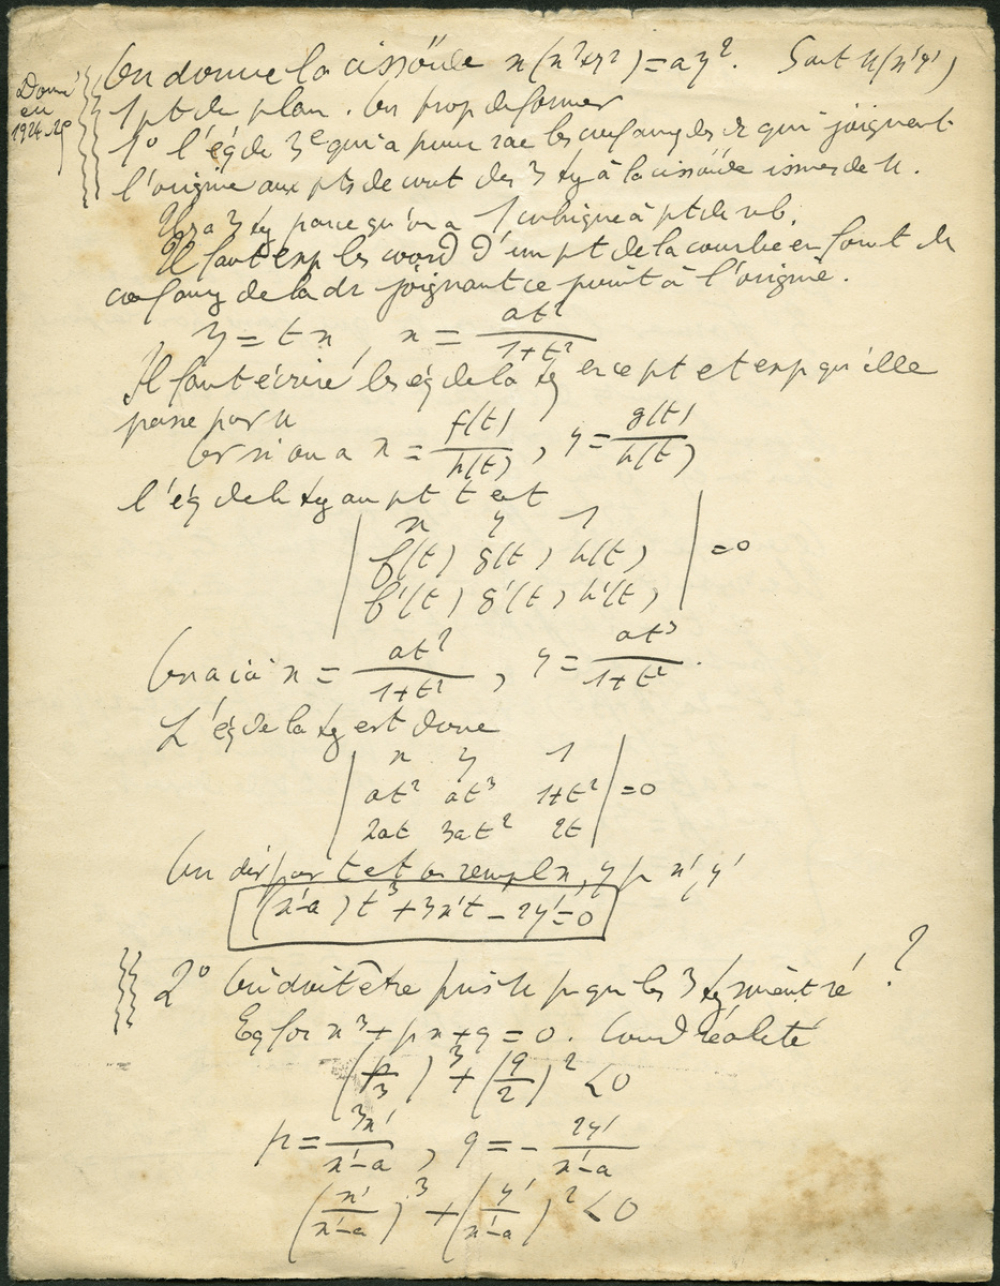 Donné
en
1924-25
On donne la cissoïde x(x²+y²)=ay². Soit M(x'y')
1 pt du plan. On prop de former
1° l'éq de 3e qui a pour rac les coef ang des dr qui joignent
l'origine aux pts de cont des 3 tg à la cissoïde issues de M.
Il y a 3 tg parce qu'on a 1 cubique à pt de reb.
Il faut exp les coord d'un pt de la courbe en fonct du
coef ang de la dr joignant ce point à l'origine.
y = tx, x = at²/(1+t²)
Il faut écrire l'éq de la tg en ce pt et exp qu'elle
passe par M
Or si on a x = f(t)/h(t), y = g(t)/h(t)
l'éq de la tg au pt t est
| x y 1 |
| f(t) g(t) h(t) | =0
| f'(t) g'(t) h'(t) |
On a ici x = at²/(1+t²), y = at³/(1+t²).
L'éq de la tg est donc
| x y 1 |
| at² at³ 1+t² | =0
| 2at 3at² 2t |
On div par t et on rempl x, y p x', y'
(x'-a)t³+3x't-2y'=0
2° Où doit être pris M p que les 3 tg soient ré ?
Eq for x³+px+q=0. Cond réalité
(p/3)³+(q/2)²<0
p = 3x'/(x'-a), q = - 2y'/(x'-a)
(x'/(x'-a))³+(y'/(x'-a))²<0